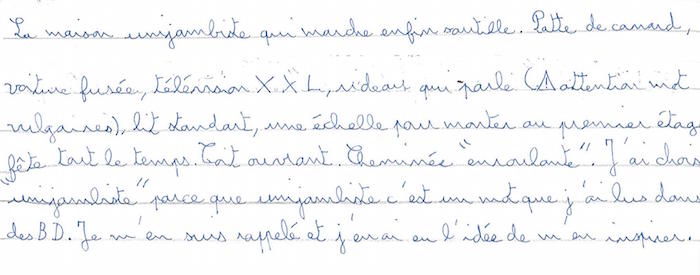 La maison unijambiste qui marche enfin sautille. Patte de canard,
voiture fusée, télévision X X L, rideaus qui parle (⚠ attention mot
vulgaires), lit standart, une échelle pour monter au premier étag
fête tout le temps. Toit ouvrant. Cheminée "enroulante". J'ai chois
"unijambiste" parce que unijambiste c'est un mot que j'ai lus dans
des BD. Je m'en suis rappelé et j'en ai eu l'idée de m'en inspirer.